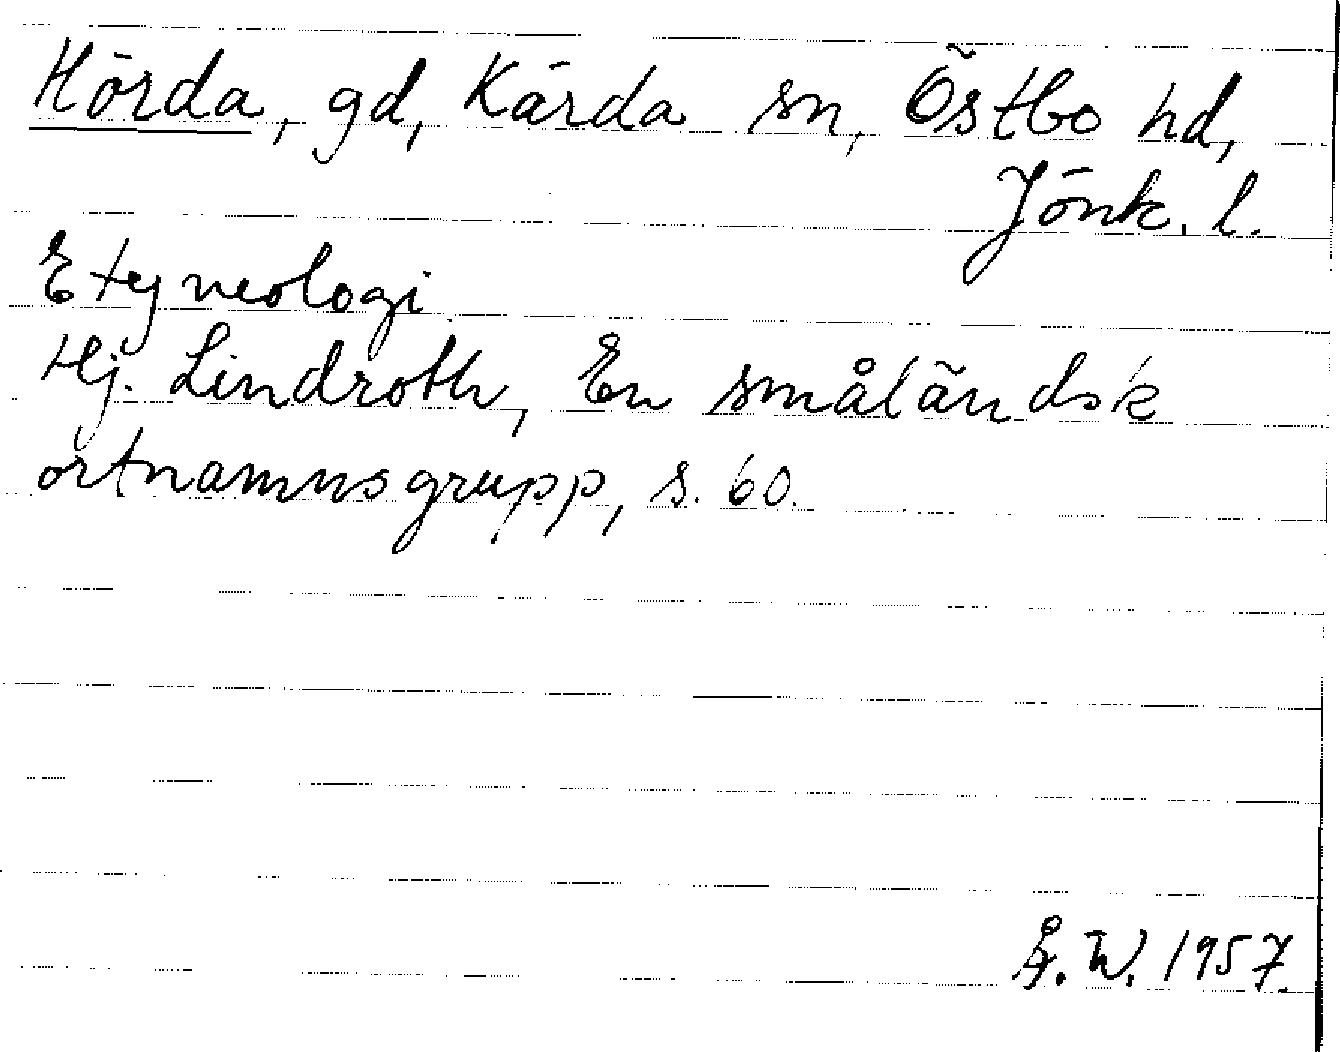 Hörda, gd, Kärda sn, Östbo hd,
Jönk. l.
Etymologi
Hj. Lindroth, En småländsk
ortnamnsgrupp, s. 60.
Å. W. 1957.